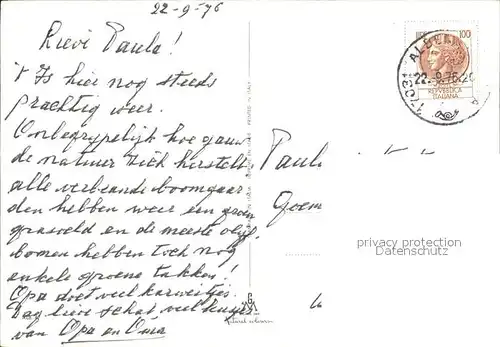 22-9-76
Lieve Paula!
't Is hier nog steeds
prachtig weer.
Onbegrijpelijk hoe gauw
de natuur zich herstelt
alle verbrande boomgaar
den hebben weer een groen
grasveld en de meeste olijf
bomen hebben toch nog
enkele groene takken!
Opa doet veel karweitjes.
Dag lieve schat, veel kusjes
van Opa en Oma
100
ALBEN
22-9-76
REPVBBLICA
ITALIANA
Paul
Goem
privacy protection
Datenschutz